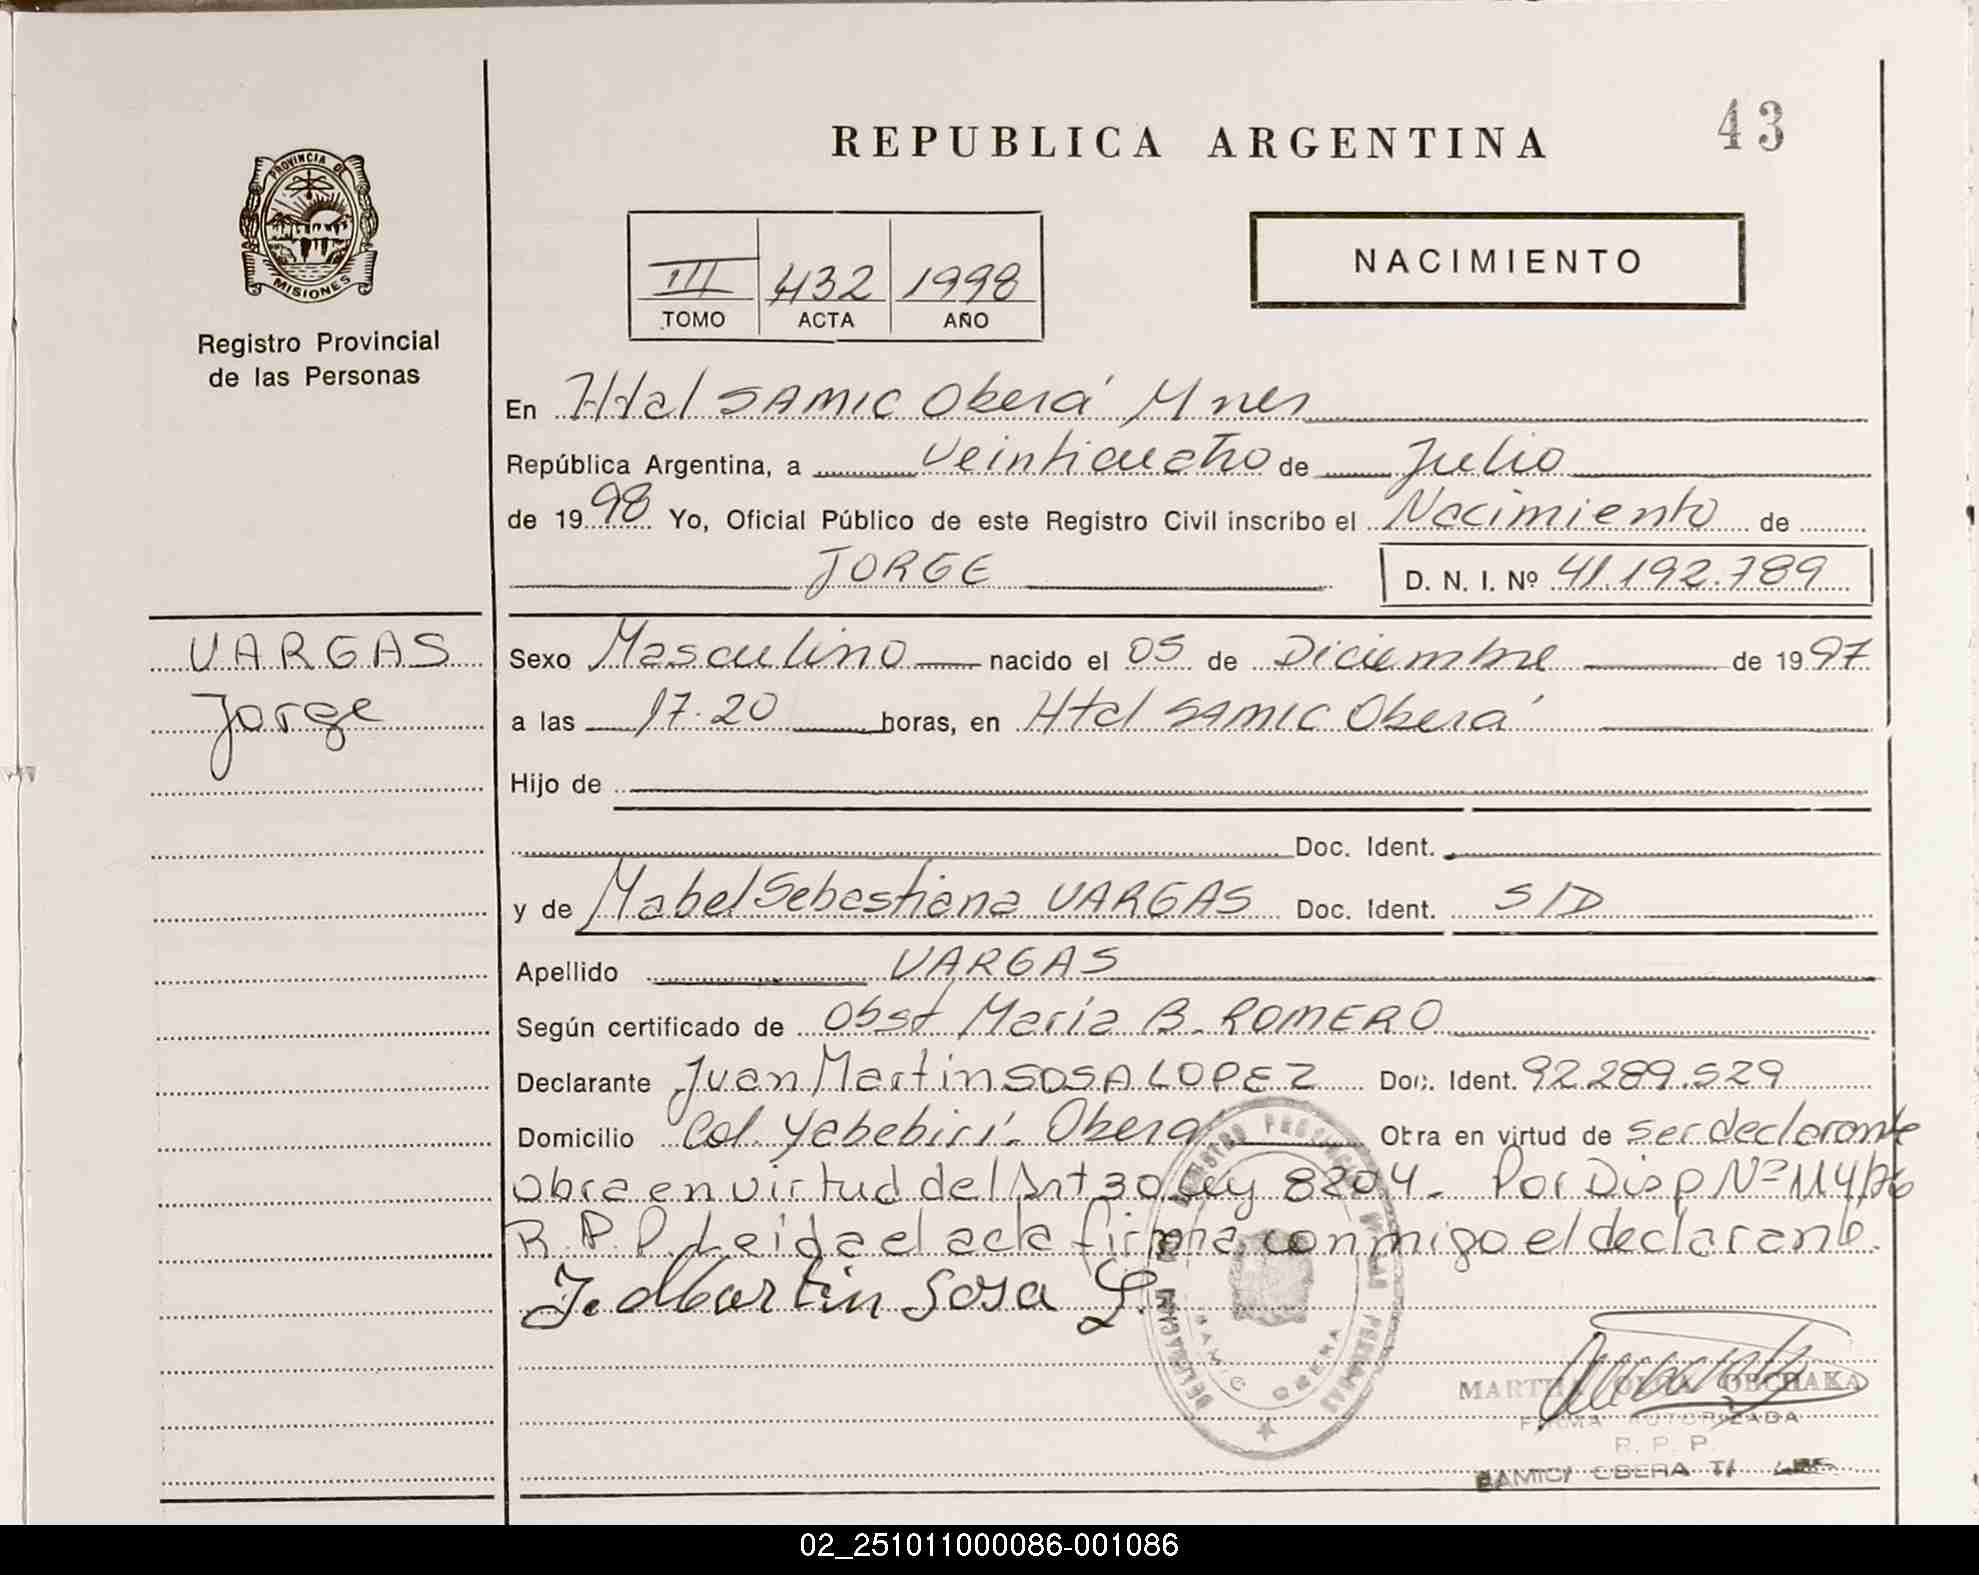 REPUBLICA ARGENTINA
43
PROVINCIA DE
MISIONES
Registro Provincial
de las Personas
III 432 1998
TOMO ACTA AÑO
NACIMIENTO
En Htal SAMIC Oberá Mnes
República Argentina, a veinticuatro de Julio
de 1998 Yo, Oficial Público de este Registro Civil inscribo el Nacimiento de
JORGE D. N. I. Nº 41.192.789
VARGAS
Jorge
Sexo Masculino nacido el 05 de Diciembre de 1997
a las 17.20 horas, en Htal SAMIC Oberá
Hijo de
Doc. Ident.
y de Mabel Sebastiana VARGAS Doc. Ident. S/D
Apellido VARGAS
Según certificado de Obst María B. ROMERO
Declarante Juan Martin SOSA LOPEZ Doc. Ident. 92.289.529
Domicilio Col. Yabebirí. Oberá Obra en virtud de ser declarante
obra en virtud del Art 30 Ley 8204. Por Disp Nº 114/76
R.P.P. Leida el acta firma conmigo el declarante.
J. Martin Sosa L.
SAMIC OBERA
MARTHA OBCHAKA
FIRMA AUTORIZADA
R. P. P.
SAMIC OBERA
02_251011000086-001086